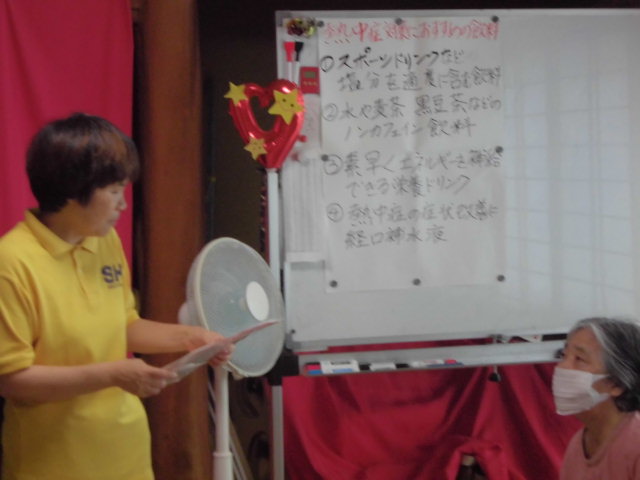 熱中症対策におすすめの飲料
①スポーツドリンクなど
塩分を適度に含む飲料
②水や麦茶 黒豆茶などの
ノンカフェイン飲料
③素早くエネルギーを補給
できる栄養ドリンク
④熱中症の症状改善に
経口補水液
SH